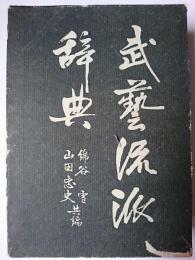 武藝流派
辞典
綿谷雪
山田忠史
共編